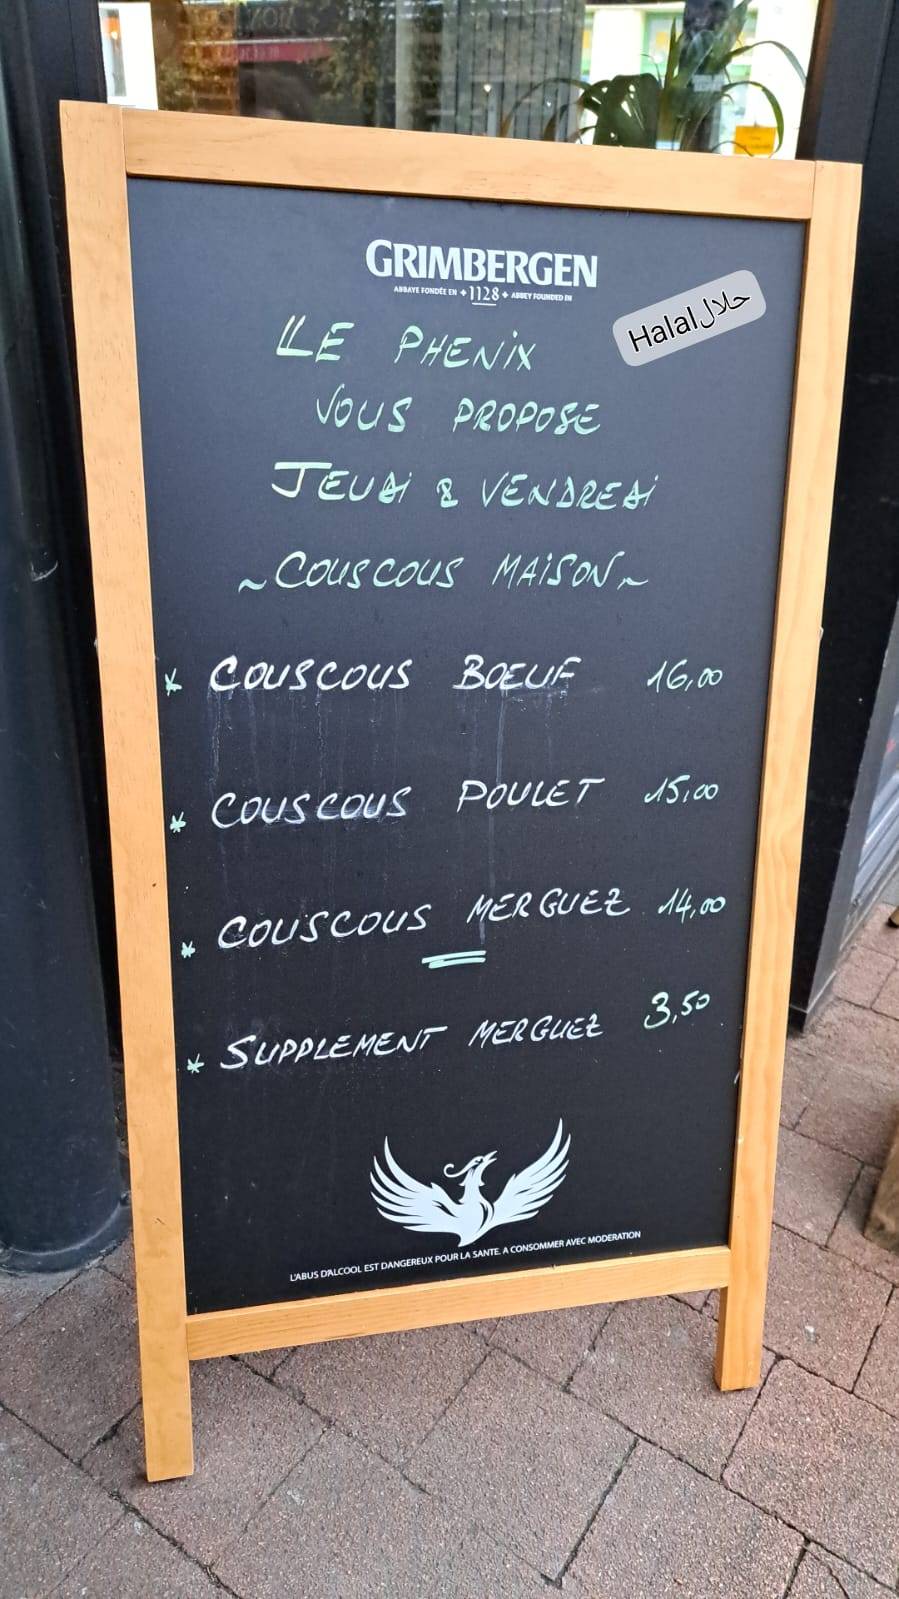 GRIMBERGEN
ABBAYE FONDÉE EN + 1128 + ABBEY FOUNDED IN
Halal حلال
LE PHENIX
VOUS PROPOSE
JEUDI & VENDREDI
~COUSCOUS MAISON~
* COUSCOUS BOEUF 16,00
* COUSCOUS POULET 15,00
* COUSCOUS MERGUEZ 14,00
* SUPPLEMENT MERGUEZ 3,50
L'ABUS D'ALCOOL EST DANGEREUX POUR LA SANTE. A CONSOMMER AVEC MODERATION